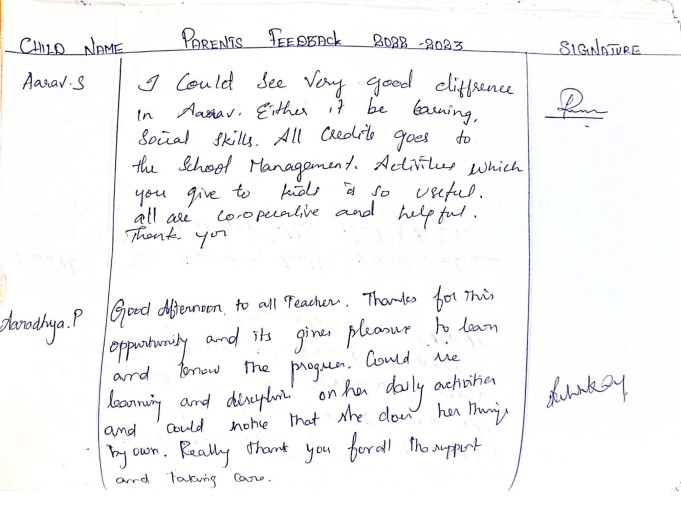 CHILD NAME PARENTS FEEDBACK 2022 -2023 SIGNATURE
Aarav.S I Could see Very good diffrence
in Aarav. Either it be learning,
Social skills. All Credits goes to
the School Management. Activities which
you give to kids is so useful.
all are co-operative and helpful.
Thank you
Aaradhya.P Good Afternoon, to all Teacher. Thanks for This
opportunity and its gives pleasure to learn
and know the progress. Could see
learning and discipline on her daily activities
and could notice that she does her things
by own. Really thank you for all the support
and taking care.